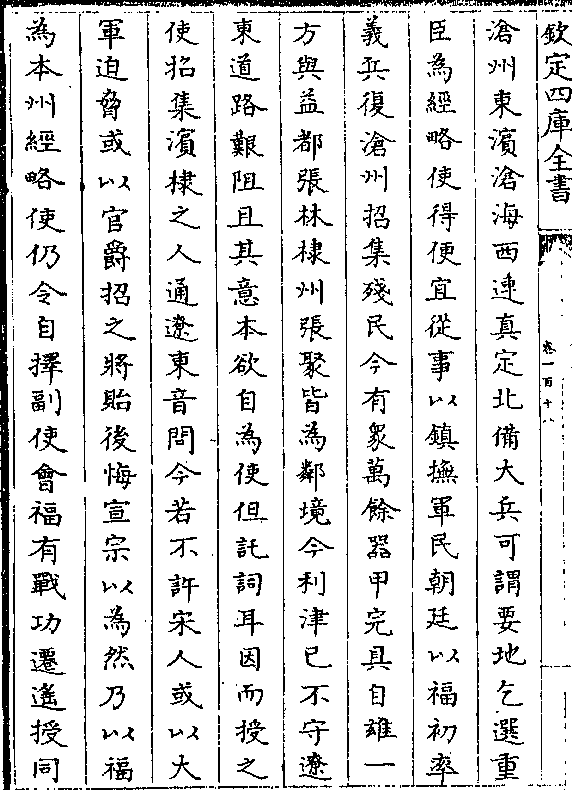 欽定四庫全書
卷一百十八
滄州東濱滄海西連真定北備大兵可謂要地乞選重
臣為經略使得便宜從事以鎮撫軍民朝廷以福初率
義兵復滄州招集殘民今有衆萬餘器甲完具自雄一
方與益都張林棣州張聚皆為鄰境今利津已不守遼
東道路艱阻且其意本欲自為使但託詞耳因而授之
使招集濱棣之人通遼東音問今若不許宋人或以大
軍迫脅或以官爵招之將貽後悔宣宗以為然乃以福
為本州經略使仍令自擇副使會福有戰功遷遙授同